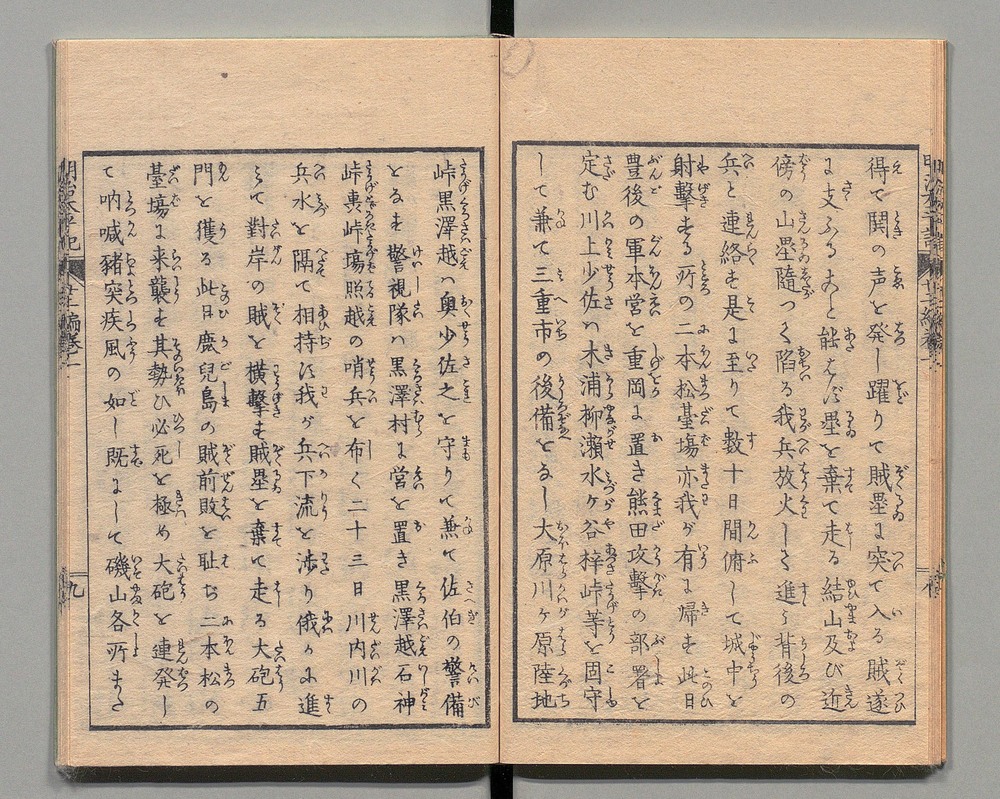 得て鬨の声を発し躍りて賊塁に突て入る賊遂
に支ふること能はず塁を棄て走る結山及び近
傍の山塁随つて陥る我兵放火しさ進ミ背後の
兵と連絡を是に至りて数十日間俯して城中を
射撃する所の二本松臺塲亦我が有に帰す此日
豊後の軍本営を重岡に置き熊田攻撃の部署を
定む川上少佐ハ木浦柳瀬水ヶ谷梓峠等を固守
して兼て三重市の後備となし大原川ヶ原陸地
峠黒澤越ハ奥少佐之を守りて兼て佐伯の警備
となす警視隊ハ黒澤村に営を置き黒澤越石神
峠峠塲照越の哨兵を布く二十三日川内川の
兵水を隔て相持す我が兵下流を渉り俄かに進
ミて對岸の賊を横撃す賊塁を棄て走る大砲五
門を獲る此日鹿兒島の賊前敗を耻ぢ二本松の
臺塲に来襲す其勢ひ必死を極め大砲を連発し
て吶喊豬突疾風の如し既にして磯山各所また
明治太平記
廿二編巻之一
九